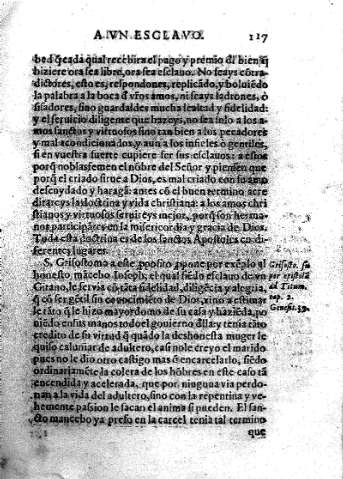 A VN ESCLAVO. 117
bed q̃ cada qual recebira el pago y premio dl bien q̃
hiziere ora sea libre, ora sea esclauo. No seays cõtra-
dictores, esto es, respondones, replicãdo, y boluiẽdo
la palabra a la boca d̃ vr̃os amos, ni seays ladrones, o
sisadores, sino guardaldes mucha lealtad y fidelidad:
y el seruicio diligente que hazeys, no sea solo a los a-
mos sanctos y virtuosos sino tan bien a los peccadores
y mal acondicionados, y aun a los infieles o gentiles,
si en vuestra suerte cupiere ser sus esclauos: a estos
porq̃ no blasfemen el nõbre del Señor y piensen que
por el criado sirue a Dios, es mal criado con su amo
descuydado y haragã: antes cõ el buen termino acre
ditareys la doctrina y vida christiana: a los amos chri
stianos y virtuosos seruireys mejor, porq̃ son herma-
nos participãtes en la misericordia y gracia de Dios.
Toda esta doctrina es de los sanctos Apostoles en di-
ferentes lugares.
S. Grisostomo a este pposito pone por exẽplo al
honesto mãcebo Ioseph, el qual siẽdo esclauo de vn
Gitano, le seruia cõ tãta fidelidad, diligẽcia y alegria,
q̃ cõ ser gẽtil sin conocimiẽto de Dios, vino a estimar
le tãto q̃ le hizo mayordomo de su casa y haziẽda, po
niẽdo en sus manos todo el gouierno dlla: y tenia tãto
credito de su virtud q̃ quãdo la deshonesta muger le
quiso calũniar de adultero, casi no le creyo el marido
pues no le dio otro castigo mas q̃ encarcelarlo, siẽdo
ordinariamẽte la colera de los hõbres en este caso tã
encendida y acelerada, que por ninguna via perdo-
nan a la vida del adultero, sino con la repentina y ve-
hemente passion le sacan el anima si pueden. El san-
cto mancebo ya preso en la carcel tenia tal termino
que
Grisosto.
por
ad Titum.
cap. 2.
Genesis. 39.